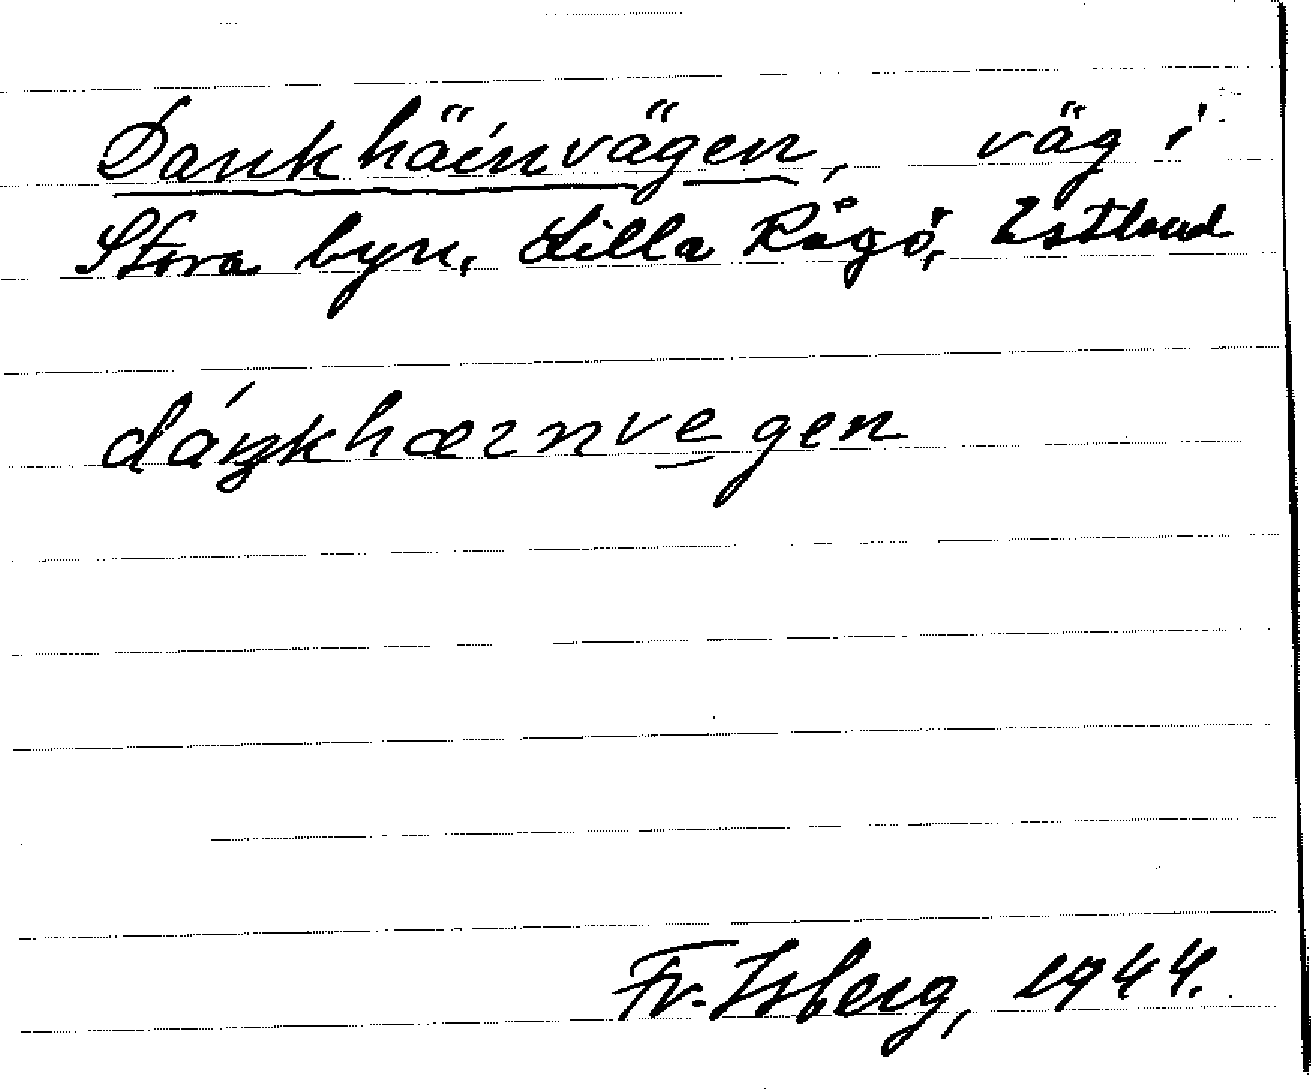 Dankhäinvägen, väg i
Stora byn, Lilla Rågö, Estland
dáŋkhæɪnve̱gen
Fr. Isberg, 1944.